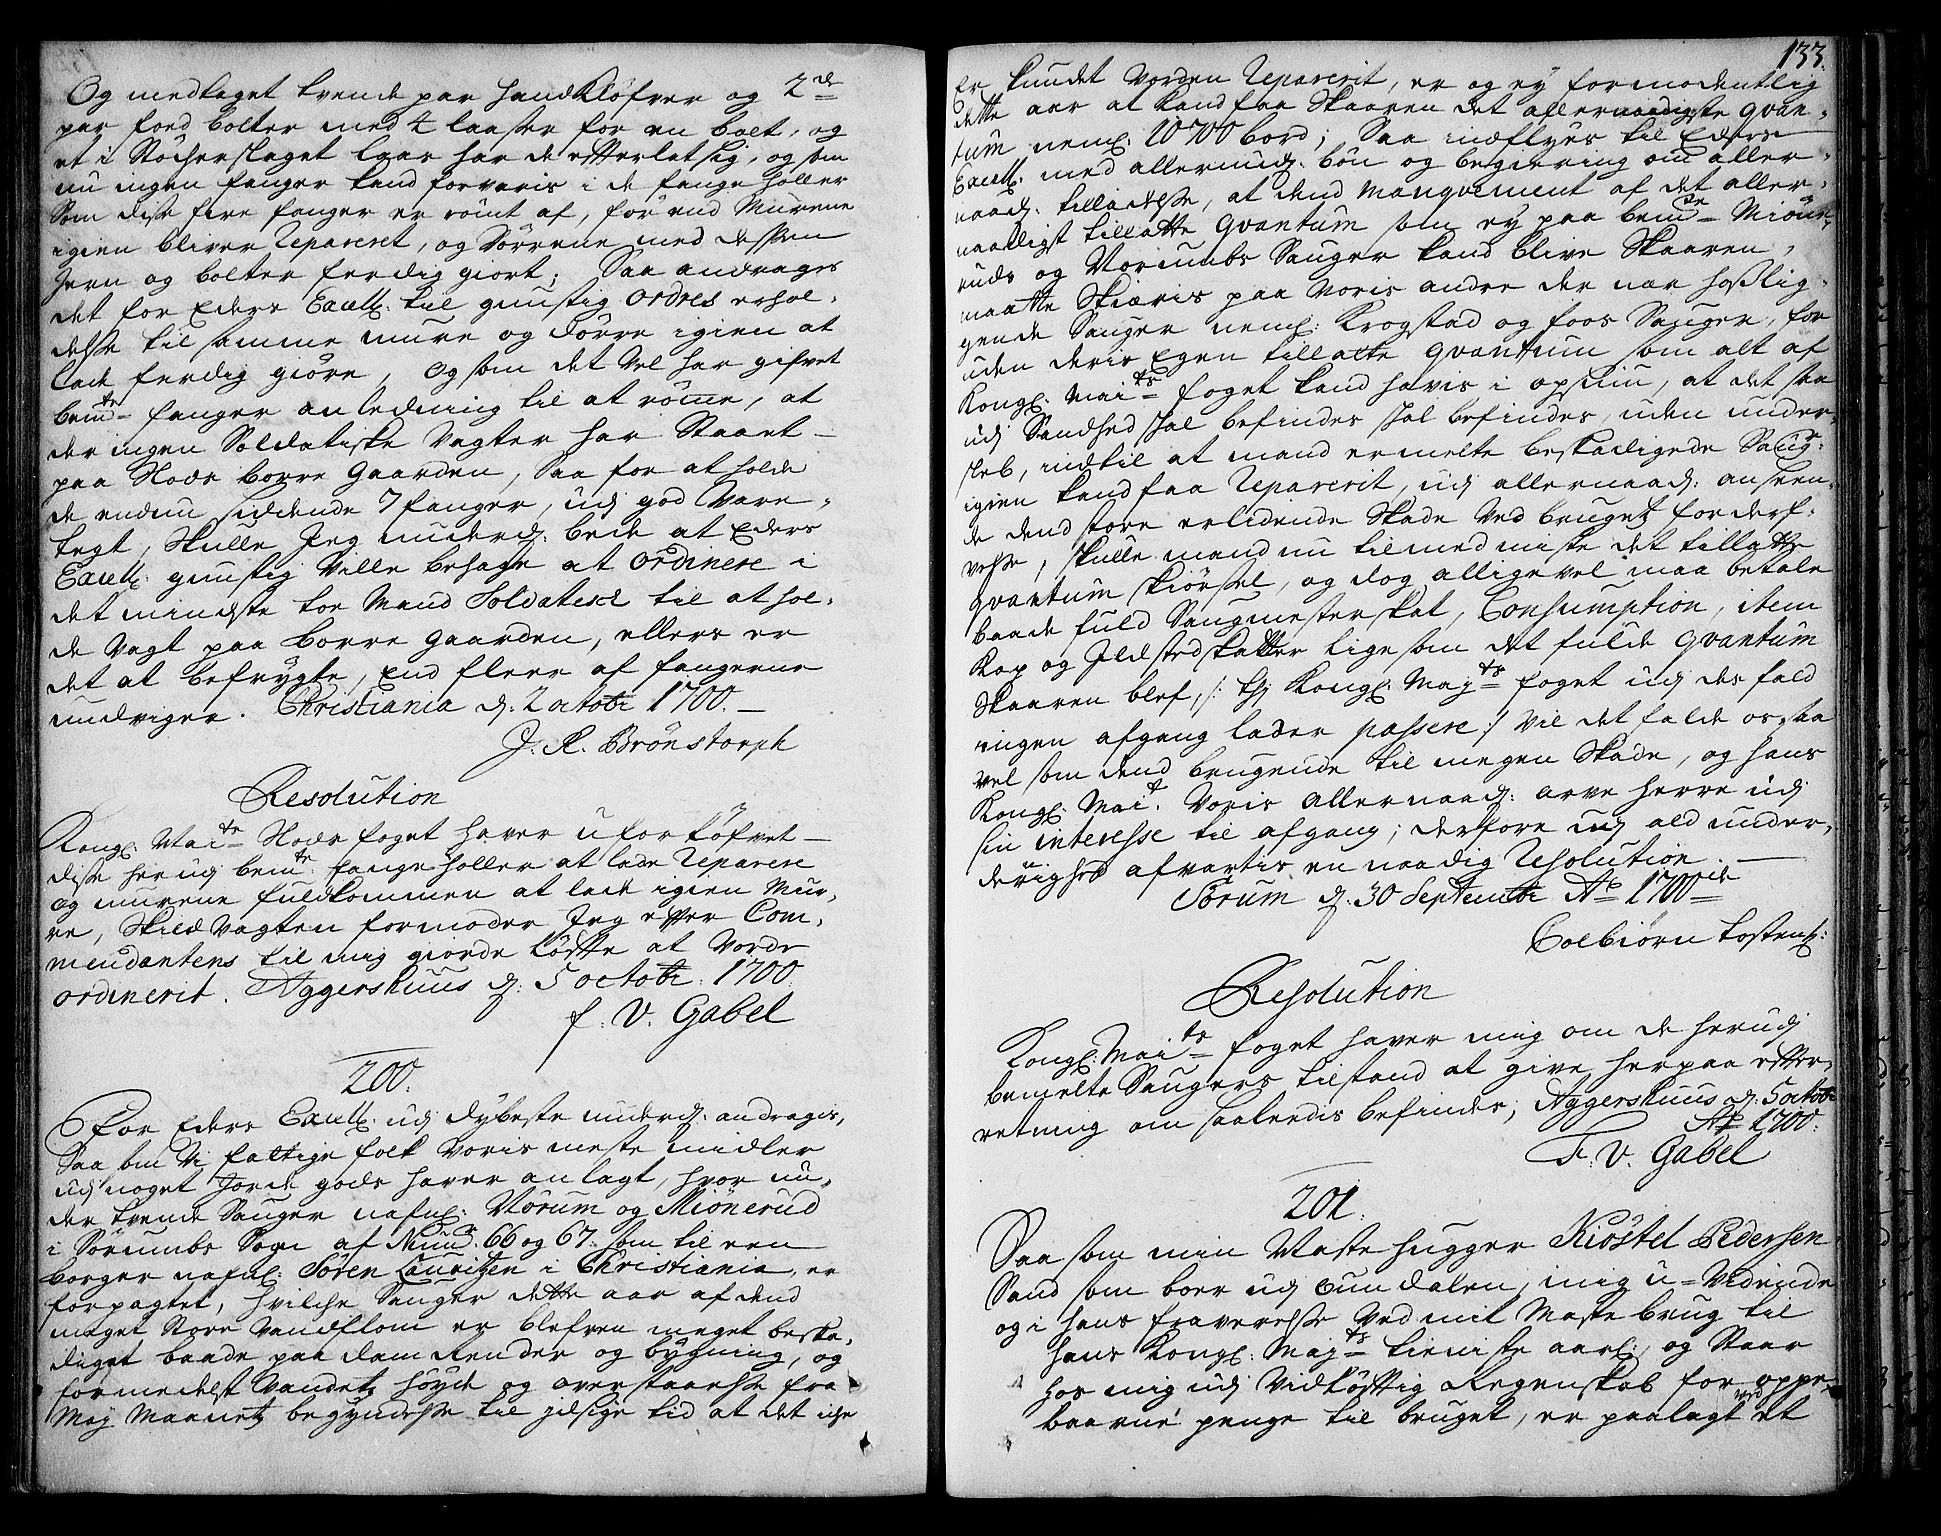 Og medtaget tvende par Handkløfver og 2de
par food bolter med 4 laaser for en bolt, og
et i Stöcherslaget laas har de efterlat sig, og som
nu ingen fanger kand forvaris i de fange holler
Som disse fire fanger er römt af, för end Murene
igien bliver Repareret, og Dörrene med dessen
Jern og bolter ferdig giort; Saa andrages
det for Eders Excell: til gunstig ordres erhol-
delse til samme mure og dörre igien at
lade ferdig giöre, Og som det vel har gifvet
bemte fanger anledning til at römme, at
der ingen Soldatiske Vagter har Staaet
paa Slods borre Gaarden, Saa for at holde
de endnu siddende 7 fanger, udj god Vare-
tegt, Skulle Jeg underd: bede at Eders
Excell: gunstig Ville behage at ordinere i
det mindste toe Mand Soldatesk til at hol-
de Vagt paa borre gaarden, ellers er
det at befrygte, End fleere af fangerne
undviger. Christiania d: 2 octobr 1700.
J. R. Brönstorph
Resolution
Kongl: Mai:ts Slods foget haver ufortöfvet
disse her udj bemte fange holler at lade Reparere
og murene fuldkommen at lade igien Mur-
re, Skild Vagten formoder Jeg efter Com-
mendantens til mig giorde löfte at Vorde
ordinerit. Aggershuus d: 5 octobr: 1700.
f: V. Gabel
200.
For Eders Excell: udj dybeste underd: andragis,
Saa som Vi fattige folk Voris meste midler
udj noget Jorde gods haver anlagt, hvor un-
der tvende Sauger nafnl: Vorum og Miönerud
i Sörumbs Sogn af Num: 66 og 67. som til een
borger nafnl: Sören Lauritzen i Christiania, er
forpagtet, hvilche Sauger dette aar af dend
meget Store Vandflom er blefven meget beska-
diget baade paa dam Render og bygning, og
formedelst Vandetz höyde og overstaaelse fra
May Maanetz begyndelse til jilsige tid at det iche
133.
er kundet Vorden Reparerit, er og ey formodentlig
dette aar at kand faa Skaaren det allernaadigste qvan-
tum neml: 10700 bord; Saa indflyes til Eders
Excell: med allerund: bön og begiering om aller-
naad: tilladelse, at dend manqvement af det aller-
naadligst tillatte Qvantum som ey paa bemte Miöne-
ruds og Vorumbs Sauger kand blive Skaaren,
maatte Skiæris paa Voris andre der nær hoslig-
gende Sauger neml: Krogstad og foos Sauger, for
uden deris Egen tillatte qvantum som alt af
Kongl: Maits foget kand havis i opsiun, at det saa
udj Sandhed skal befindes skal befindes, uden under-
sleb, indtil at mand ermelte beskadigede Saug:
igien kand faa Reparerit, udj allernaad: anseen-
de dend store erlidende Skade Ved brugetz forderf-
velse, skulle mand nu til med miste det tillatte
qvantum skiörsel, og dog alligevel maa betale
baade fuld Saugmesterskat, Consumption, item
Kop og Jldstedskatter lige som det fulde qvantum
Skaaren blef, /: thj Kongl: Mayts foget udj des fald
ingen afgang lader passere :/ Vil det falde os saa
vel som dend brugende til megen Skade, og hans
Kongl: Mait. Voris Allernaad: arve herre udj
sin interesse til afgang; derfore udj ald under-
derighed afvartis en naadig Resolution.
Sörum d. 30 Septembr Ao 1700de
Colbiörn Tostens:
Resolution
Kongl: Maits foget haver mig om de herudj
bemelte Saugers tilstand at give herpaa efter-
retning om saaledis befindes; Aggershuus d: 5 octobr
Ao 1700.
F. V. Gabel
201.
Saa som min Maste hugger Kiöstel Pedersen
Sand som boer udj Gundalen, mig u-Vidende
og i hans fraverelse Ved mit Maste brug til
hans Kongl: Mayts tieniste aarl: og Staar
hos mig udj Vidtlöftig Regenskab for oppe-
baarne penge til bruget, er paalagt ved et